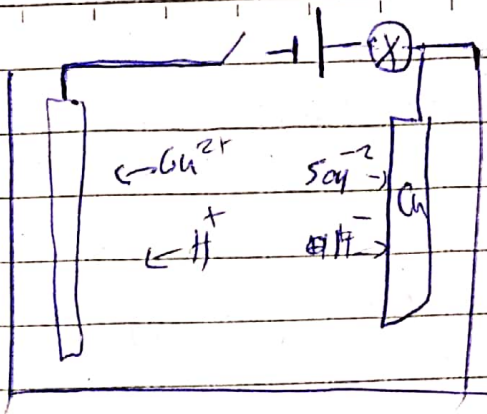 X
Cu²⁺
SO4⁻²
Cu
H⁺
OH⁻